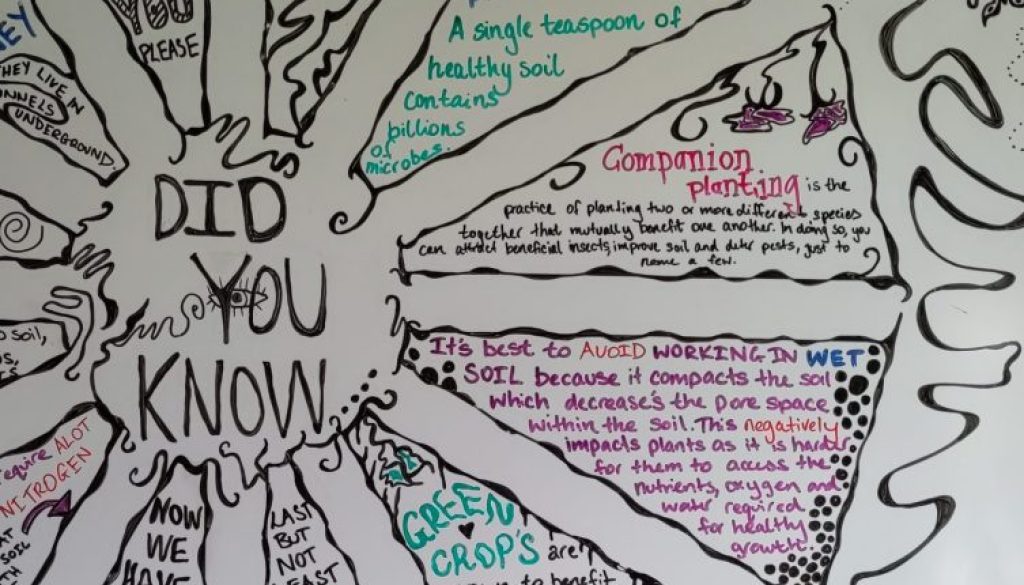 YOU
PLEASE
HEY
THEY LIVE IN
TUNNELS
UNDERGROUND.
A single teaspoon of
healthy soil
contains
billions
of
microbes.
Companion
planting is the
practice of planting two or more different species
together that mutually benefit one another. In doing so, you
can attract beneficial insects, improve soil and deter pests, just to
name a few.
DID
YOU
KNOW
soil,
It's best to AVOID WORKING IN WET
SOIL because it compacts the soil
which decrease's the pore space
within the soil. This negatively
impacts plants as it is harder
for them to access the
nutrients, oxygen and
water required
for healthy
growth.
require ALOT
NITROGEN
AT
SOIL
NOW
WE
HAVE
LAST
BUT
NOT
LEAST
GREEN
CROP'S are
to benefit